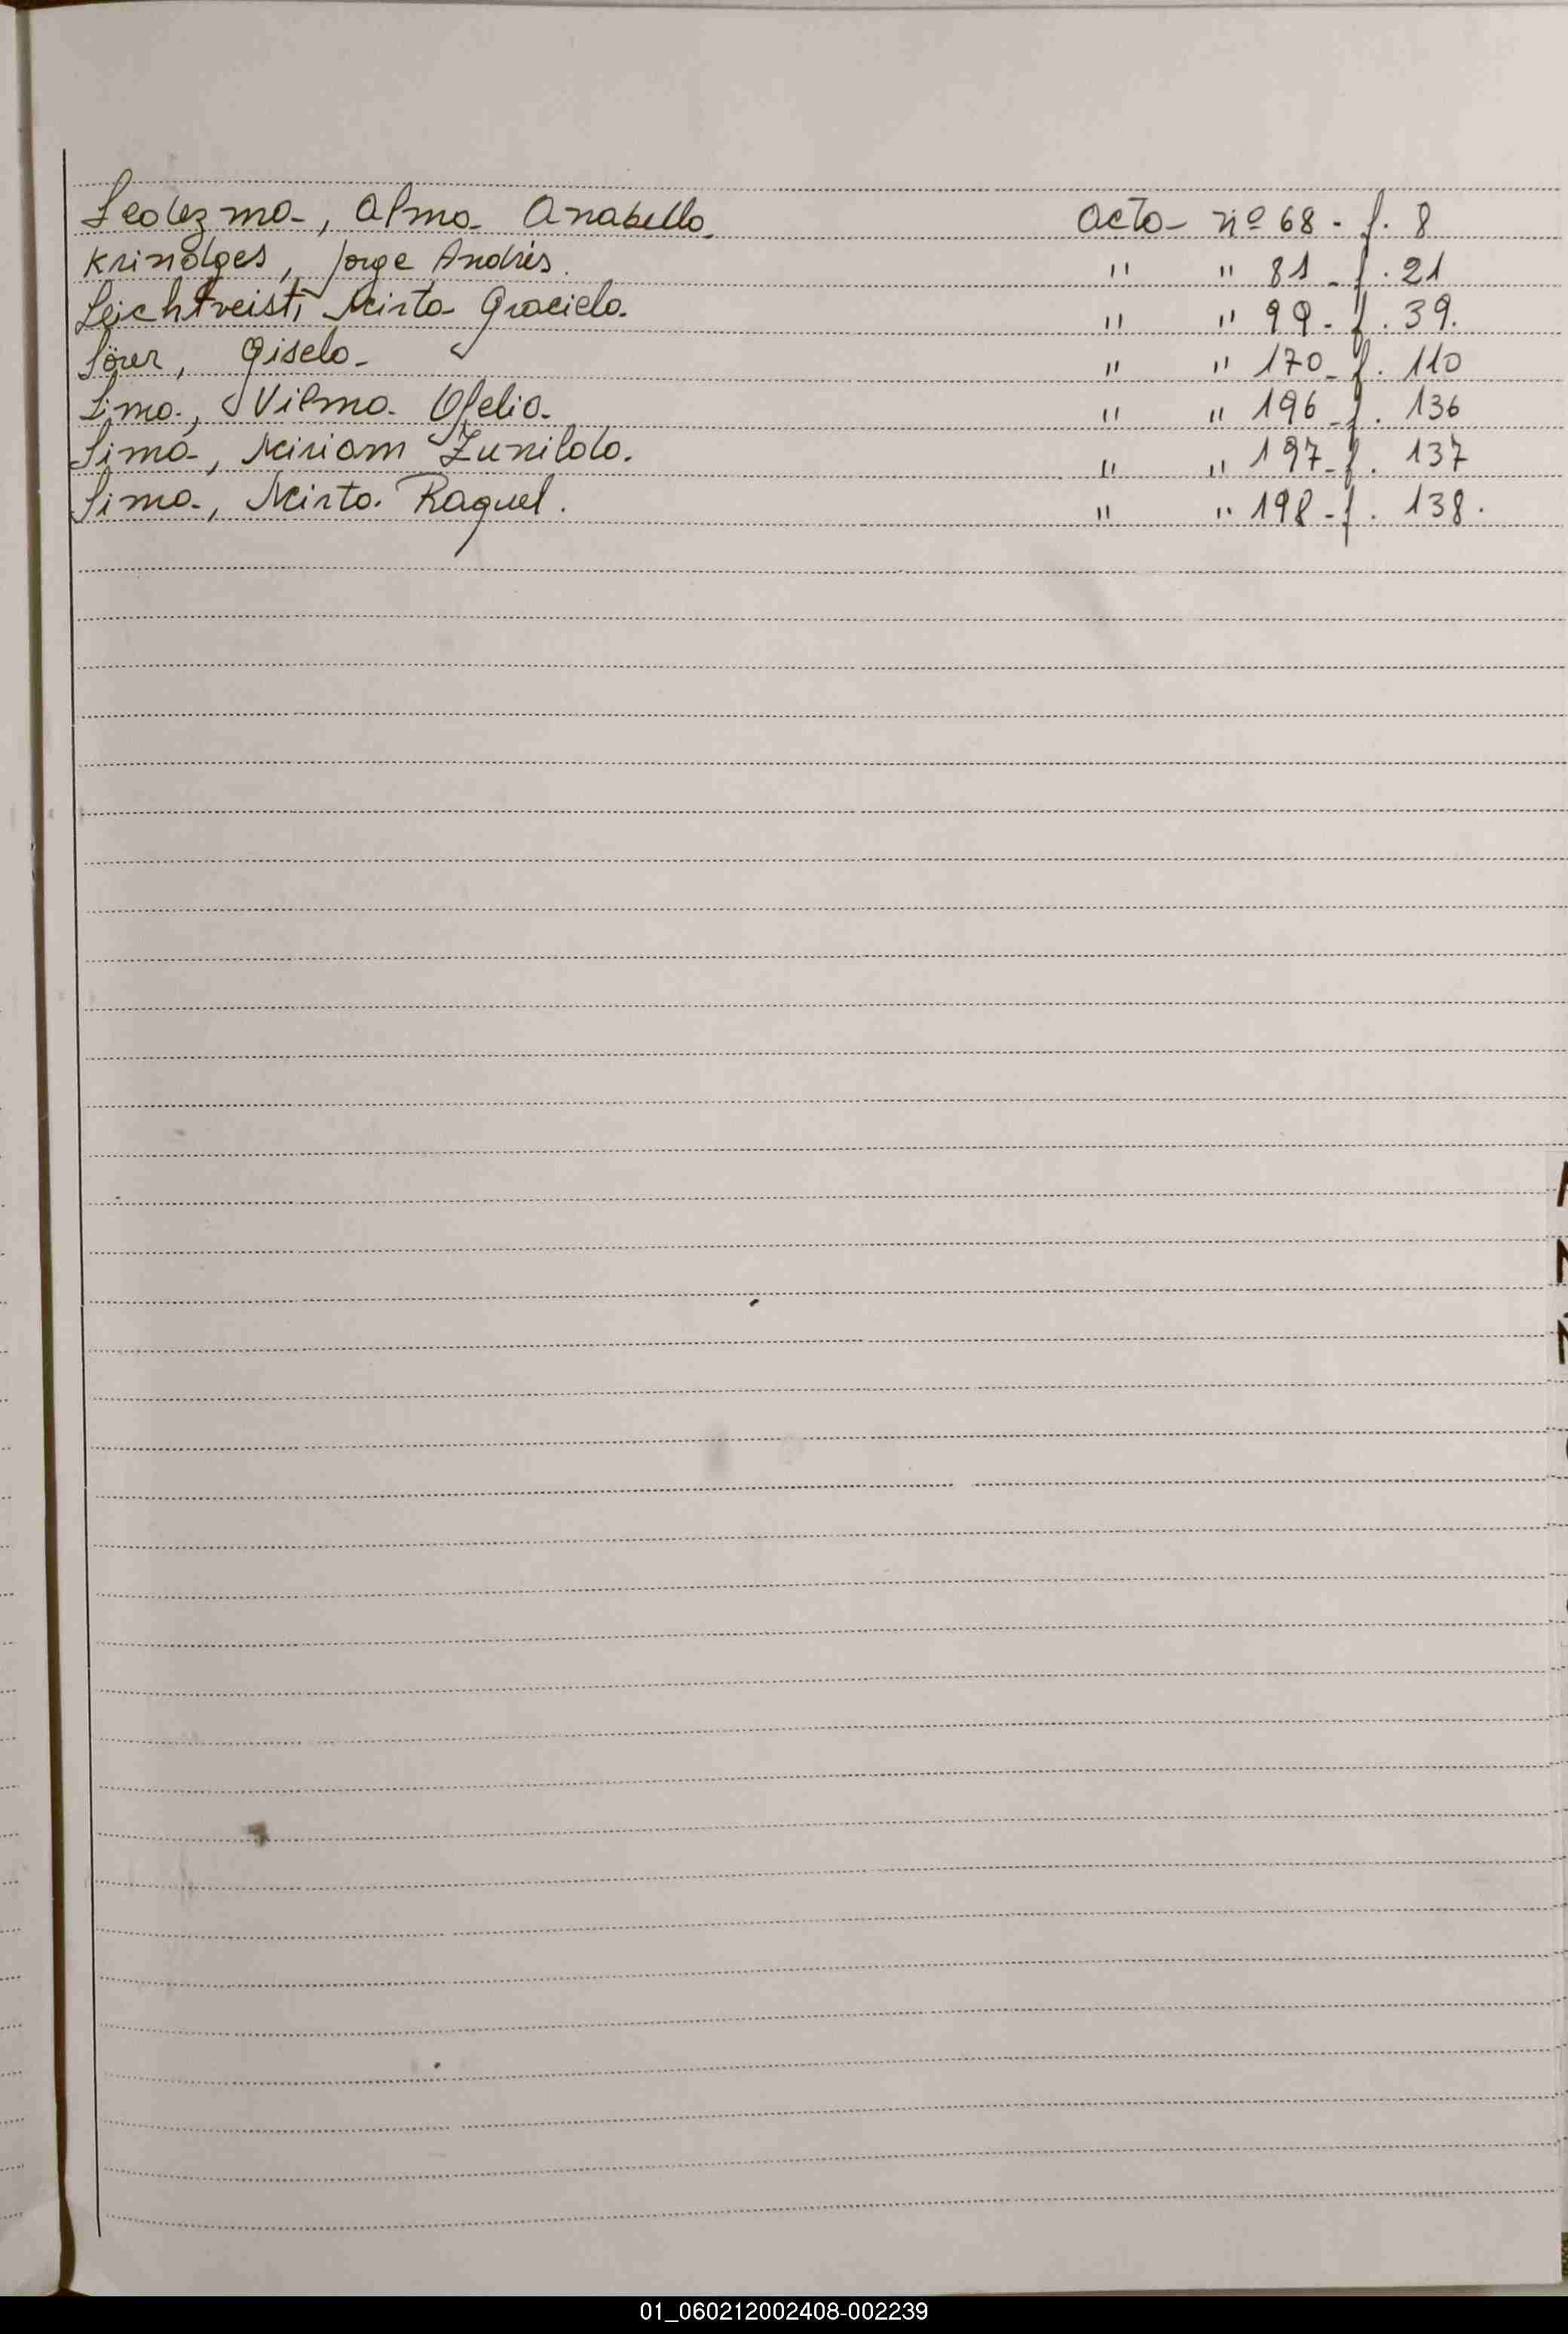 Ledezma, Alma Anabella. Acta nº 68 - f. 8
Krindges, Jorge Andrés. " " 81 - f. 21
Leichtveist, Mirta Graciela. " " 99 - f. 39.
Lörer, Gisela " " 170 - f. 110
Lima, Vilma Ofelia. " " 196 - f. 136
Lima, Miriam Zunilda. " " 197 - f. 137
Lima, Mirta Raquel. " " 198 - f. 138.
01_060212002408-002239